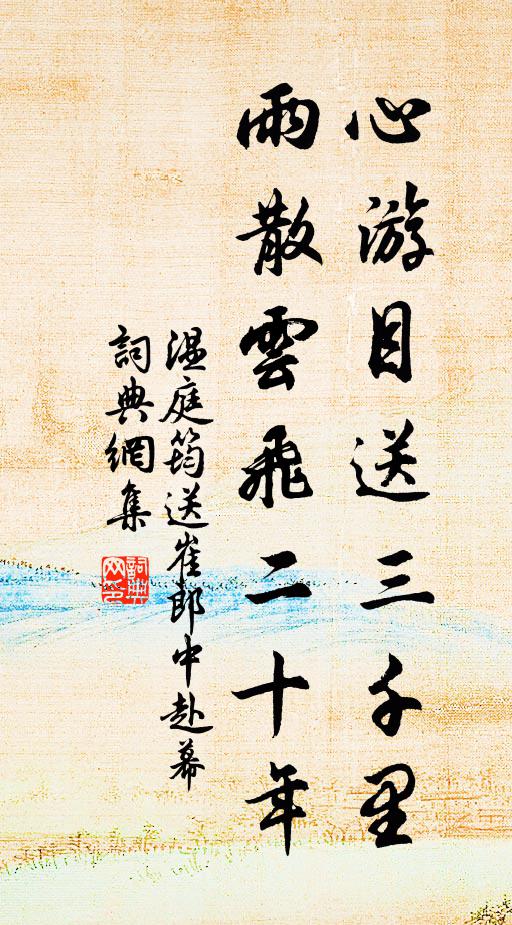 心游目送三千里
雨散雲飛二十年
溫庭筠送崔郎中赴幕
詞典網集
詞典
网印